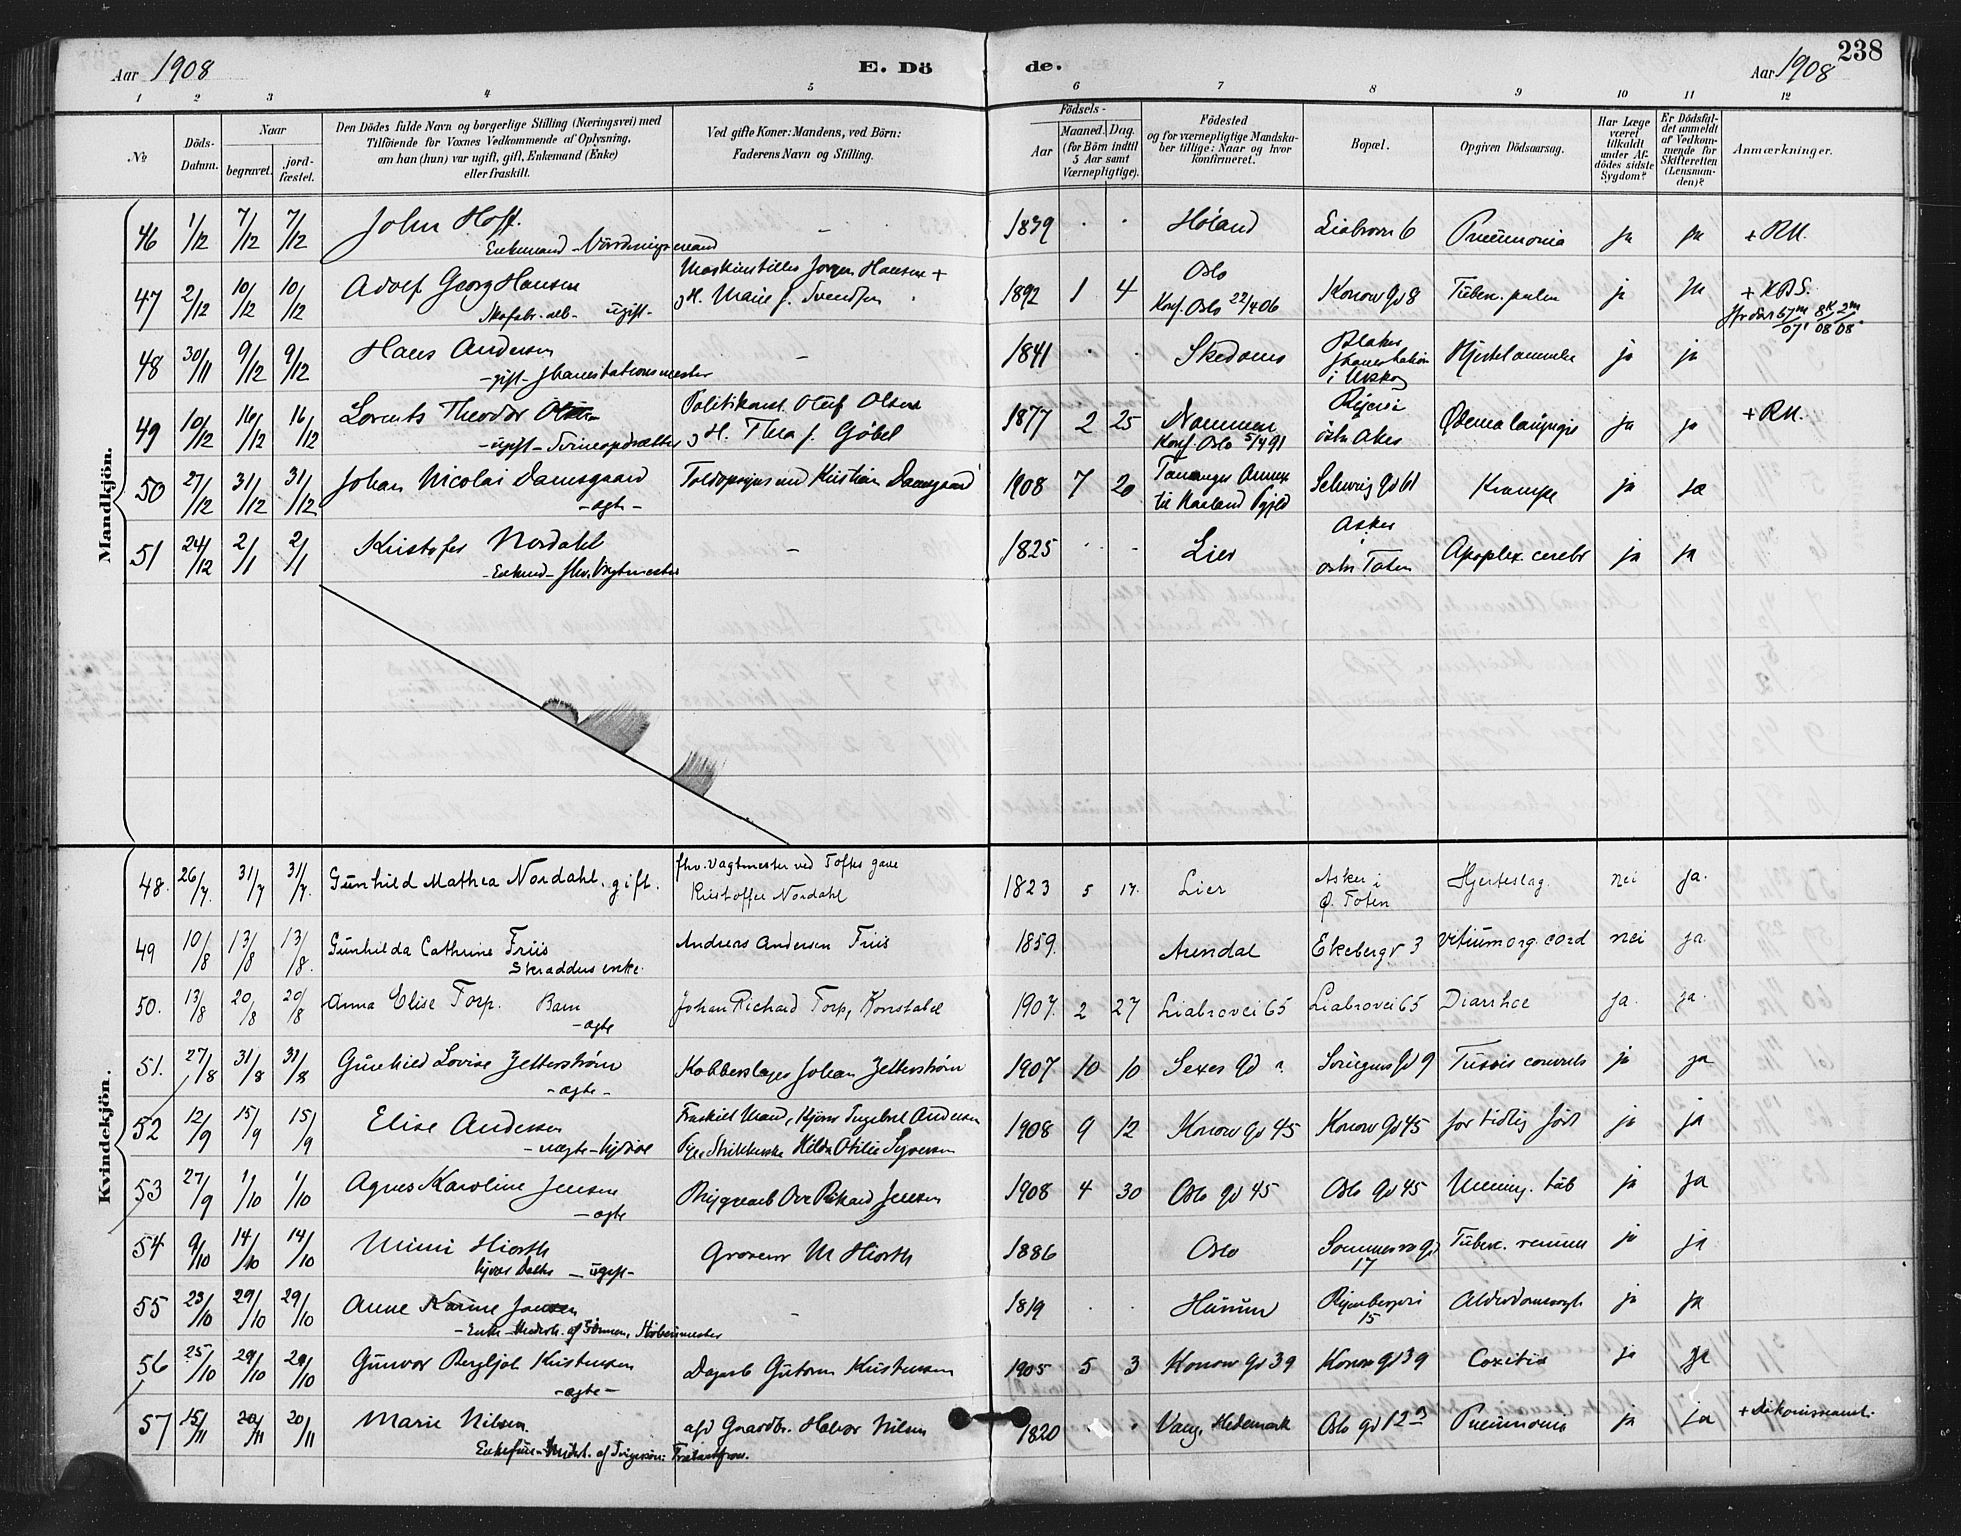 238
Aar 1908
E. Dö
de.
Aar 1908
1 2 3 4 5 6 7 8 9 10 11 12
No
Döds-Datum.
Naar
begravet.
jord-fæstet.
Den Dödes fulde Navn og borgerlige Stilling (Næringsvei) med
Tilföiende for Voxnes Vedkommende af Oplysning,
om han (hun) var ugift, gift, Enkemand (Enke)
eller fraskilt.
Ved gifte Koner: Mandens, ved Börn:
Faderens Navn og Stilling.
Födsels-
Aar
Maaned. Dag.
(for Börn indtil
5 Aar samt
Værnepligtige).
Födested
og for værnepligtige Mandska-
ber tillige: Naar og hvor
konfirmeret.
Bopæl.
Opgiven Dödsaarsag.
Har Læge
været
tilkaldt
under Af-
dödes sidste
Sygdom?
Er Dödsfal-
det anmeldt
af Vedkom-
mende for
Skifteretten
(Lensman-
den)?
Anmærkninger.
Mandkjön.
46 1/12 7/12 7/12 John Hoff. – 1839 Høland Liabrovn 6 Pneumonia ja ja
Enkemand
47 2/12 10/12 10/12 Adolf Georg Hansen Jørgen Hansen + 1892 1 4 Oslo Konow Gd 8 Tuberc. pulm ja ja
ugift - g H. Marie f. Svendsen Konf. Oslo 22/4 06
48 30/11 9/12 9/12 Hans Andersen – 1841 Skedsmo Blaker Hjertelammelse ja ja
- gift - i Urskog
49 10/12 16/12 16/12 Lorents Theodor Olsen Politikonst. Oluf Olsen 1877 2 25 Ødema laryngis ja ja
- ugift - g H. Thea f. Göbel Konf. Oslo 5/4 91 østr Aker
50 27/12 31/12 31/12 Johan Nicolai Damsgaard Kristian Damsgaard 1908 7 20 Tananger Annex Schweig Gd 61 Krampe ja ja
- ægte -
51 24/12 2/1 2/1 Kristofer Nordahl – 1825 Lier Asker i østr Toten Apoplex. cerebr ja ja
fhv. Vagtmester
Kvindekjön.
48. 26/7. 31/7 31/7. Gunhild Mathea Nordahl. gift. fhv. Vagtmester ved Toftes gave 1823 5 17. Lier Asker i Hjerteslag. nei ja.
Kristoffer Nordahl Ø. Toten
49 10/8 13/8 13/8. Gunhilda Cathrine Friis Andreas Andersen Friis 1859. Arendal Ekebergv 3 Vitium org. cord nei ja
Skrædders enke.
50. 13/8 20/8 20/8 Anna Elise Torp. Barn Johan Richard Torp, Konstabel 1907. 2 27 Liabrovei 65 Liabrovei 65 Diarrhoe ja. ja.
- ægte
51. 27/8 31/8 31/8 Gunhild Lovise Zetterstrøm Kobberslager Johan Zetterstrøm 1907 10 10 Tussis convuls ja ja
- ægte -
52 12/9 15/9 15/9 Elise Andersen Fraskilt Mand, Andersen 1908 9 12 Konow Gd 45 Konow Gd 45 for tidlig født ja ja
- uægte - Hilda Otilie Syversen
53 27/9 1/10 1/10 Agnes Karoline Jensen Bryggearb Ove Rikard Jensen 1908 4 30 Oslo Gd 45 Oslo Gd 45 Mening. tub ja ja
- ægte
54 9/10 14/10 14/10 Mimi Hiorth M Hiorth 1886 Oslo Sommerro Gd 17 Tuberc. renum ja ja
- ugift -
55 23/10 29/10 29/10 Anne Karine Jensen – 1819 Hurum Ryenbergvei 15 Alderdomssvagh ja ja
- Enke - Underh. af Sønnen,
56 25/10 29/10 29/10 Gunvor Bergljot Kristensen Dagarb Gutorm Kristensen 1905 5 3 Konow Gd 39 Konow Gd 39 Coxitis ja ja
- ægte -
57 15/11 20/11 20/11 Marie Nilsen afd Gaardbr. Halvor Nilsen 1820 Vang, Hedemark Oslo Gd 12 Pneumonia ja ja